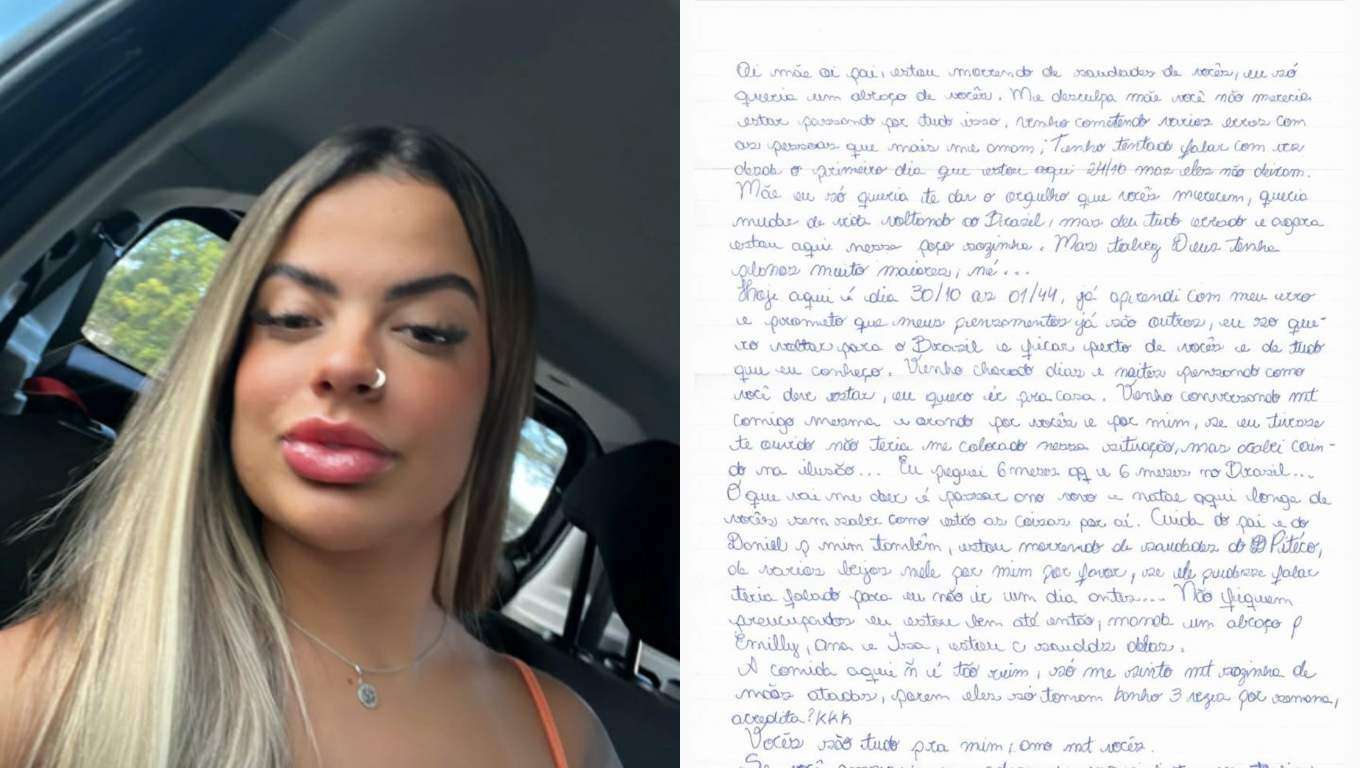 Oi mãe oi pai, estou morrendo de saudades de vocês, eu só
queria um abraço de vocês. Me desculpa mãe você não merecia
estar passando por tudo isso, venho cometendo varios erros com
as pessoas que mais me amam, Tenho tentado falar com vcs
desde o primeiro dia que estou aqui 24/10 mas eles não deixam.
Mãe eu só queria te dar o orgulho que vocês merecem, queria
mudar de vida voltando ao Brasil, mas deu tudo errado e agora
estou aqui nesse poço sozinha. Mas talvez Deus tenha
planos muito maiores, né...
Hoje aqui é dia 30/10 as 01/44, já aprendi com meu erro
e prometo que meus pensamentos já são outros, eu só que-
ro voltar para o Brasil e ficar perto de vocês e de tudo
que eu conheço. Venho chorado dias e noites pensando como
você deve estar, eu quero ir pra casa. Venho conversando mt
comigo mesma e orando por vocês e por mim, se eu tivesse
te ouvido não teria me colocado nessa situação, mas acabei cain-
do na ilusão... Eu peguei 6 meses aq e 6 meses no Brasil...
O que vai me doer é passar ano novo e natal aqui longe de
vocês sem saber como estão as coisas por aí. Cuida do pai e do
Daniel p mim também, estou morrendo de saudades do Pitéco,
da varios beijos nele por mim por favor, se ele pudesse falar
teria falado para eu não ir um dia antes... Não fiquem
preocupados eu estou bem até então, manda um abraço p
Emilly, Ana e Isa, estou c saudds delas.
A comida aqui ñ é tão ruim, só me sinto mt sozinha de
mãos atadas, porem eles só tomam banho 3 vezes por semana,
acredita? KKK
Vocês são tudo pra mim, amo mt vocês.
Se você